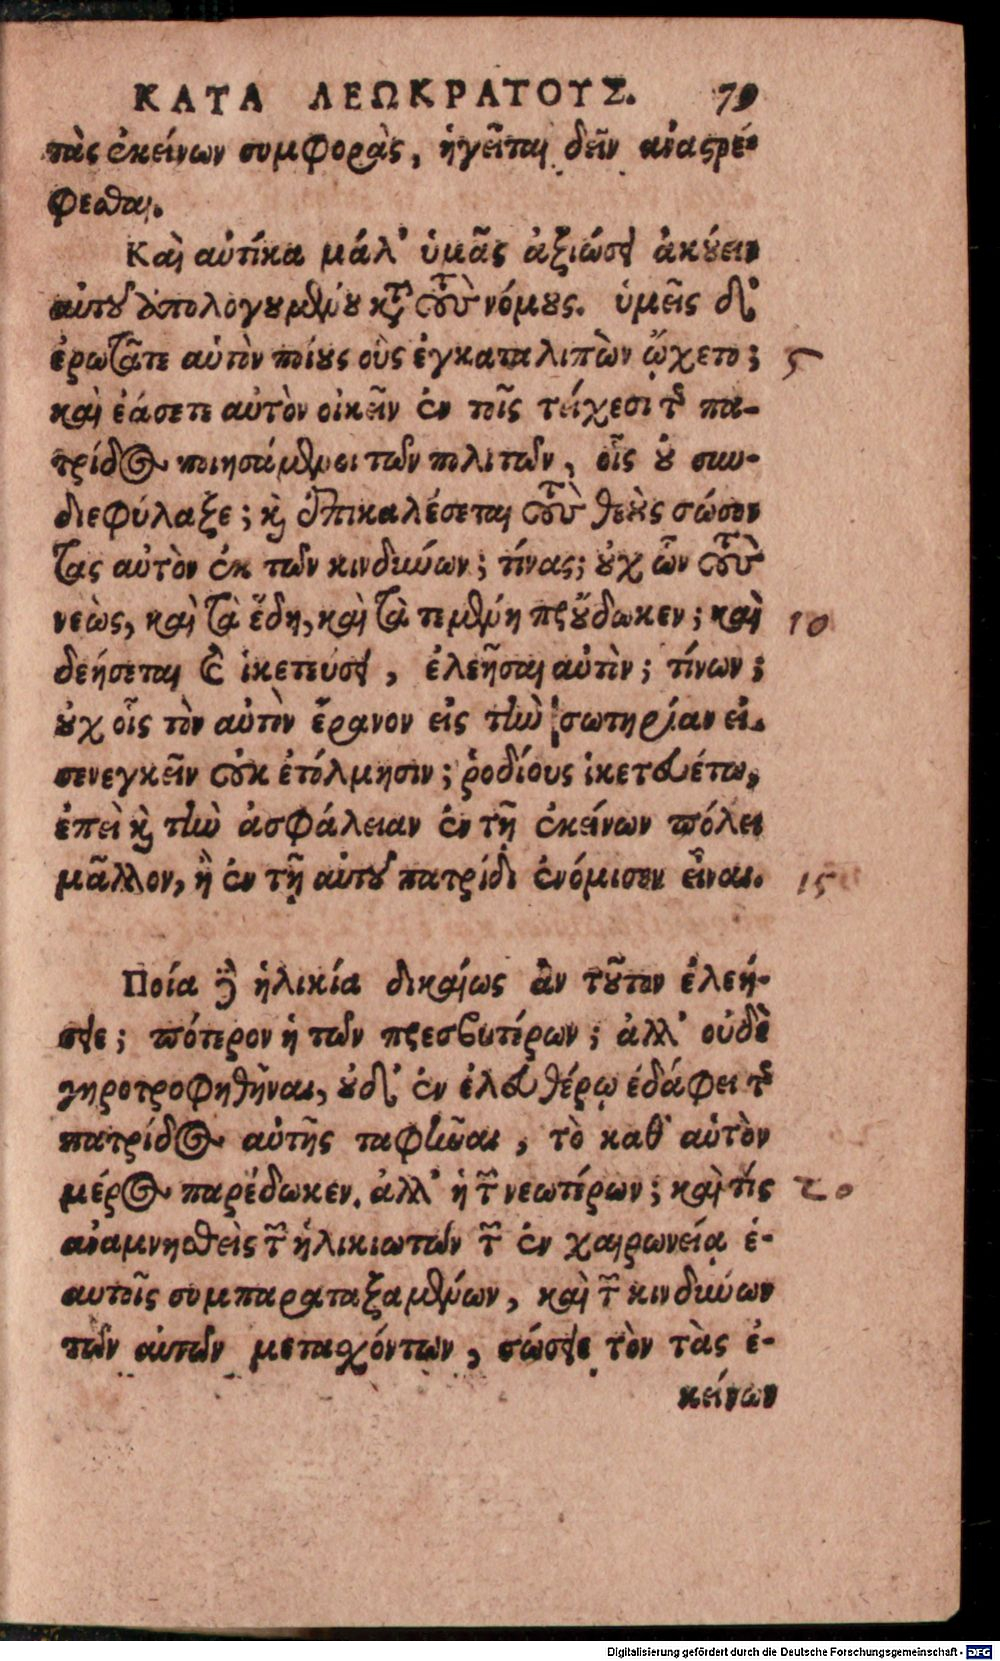 ΚΑΤΑ ΛΕΩΚΡΑΤΟΥΣ. 79
τὰς ἐκείνων συμφορὰς, ἡγεῖται δεῖν ἀναστρέ-
φεσθαι.
Καὶ αὐτίκα μάλ' ὑμᾶς ἀξιώσει ἀκούειν
αὐτοῦ ἀπολογουμένου κατὰ τοὺς νόμους. ὑμεῖς δ'
ἐρωτᾶτε αὐτὸν ποίους οὓς ἐγκαταλιπὼν ᾤχετο; 5
καὶ ἐάσετε αὐτὸν οἰκεῖν ἐν τοῖς τείχεσι τῆς πα-
τρίδος ποιησάμενοι τῶν πολιτῶν, οἷς οὐ συν-
διεφύλαξε; καὶ ἐπικαλέσεται τοὺς θεοὺς σώσον
τας αὐτὸν ἐκ τῶν κινδύνων; τίνας; οὐχ ὧν τοὺς
νεὼς, καὶ τὰ ἕδη, καὶ τὰ τεμένη προὔδωκεν; καὶ 10
δεήσεται καὶ ἱκετεύσει, ἐλεῆσαι αὐτὸν; τίνων;
οὐχ οἷς τὸν αὐτὸν ἔρανον εἰς τὴν σωτηρίαν εἰ-
σενεγκεῖν οὐκ ἐτόλμησεν; ῥοδίους ἱκετευέτω,
ἐπεὶ καὶ τὴν ἀσφάλειαν ἐν τῇ ἐκείνων πόλει
μᾶλλον, ἢ ἐν τῇ αὑτοῦ πατρίδι ἐνόμισεν εἶναι. 15
Ποία δὲ ἡλικία δικαίως ἂν τοῦτον ἐλεή-
σειε; πότερον ἡ τῶν πρεσβυτέρων; ἀλλ' οὐδὲ
γηροτροφηθῆναι, οὐδ' ἐν ἐλευθέρῳ ἐδάφει τῆς
πατρίδος αὐτῆς ταφῆναι, τὸ καθ' αὑτὸν
μέρος παρέδωκεν. ἀλλ' ἡ τῶν νεωτέρων; καὶ τίς 20
ἀναμνησθεὶς τῶν ἡλικιωτῶν τῶν ἐν χαιρωνείᾳ ἑ-
αυτοῖς συμπαραταξαμένων, καὶ τῶν κινδύνων
τῶν αὐτῶν μετασχόντων, σώσειε τὸν τὰς ἐ-
κείνων
Digitalisierung gefördert durch die Deutsche Forschungsgemeinschaft - DFG